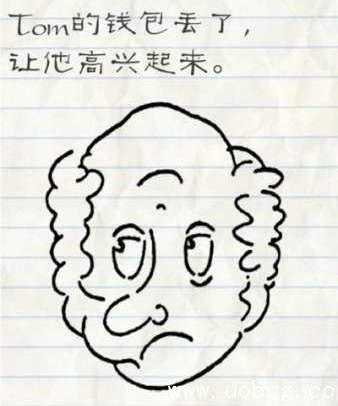 Tom的钱包丢了，
让他高兴起来。
www.uobug.cc